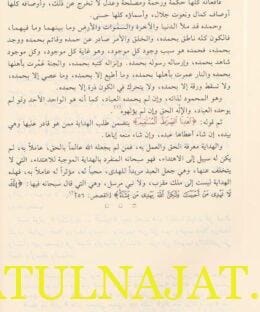 فأفعاله كلها حكمة ورحمة ومصلحة وعدل لا تخرج عن ذلك، وأوصافه كلها
أوصاف كمال ونعوت جلال، وأسماؤه كلها حسنى.
وحمده قد ملأ الدنيا والآخرة والسموات والأرض وما بينهما وما فيهما،
فالكون كله ناطق بحمده، والخلق والأمر صادر عن حمده وقائم بحمده ووجد
بحمده، فحمده هو سبب وجود كل موجود، وهو غاية كل موجود، وكل موجود
شاهد بحمده، وإرساله رسوله بحمده، وإنزاله كتبه بحمده، والجنة عمرت بأهلها
بحمده والنار عمرت بأهلها بحمده، وما أطيع إلا بحمده، وما عصي إلا بحمده،
ولا تسقط ورقة إلا بحمده، ولا يتحرك في الكون ذرة إلا بحمده.
وهو المحمود لذاته، وإن لم يحمده العباد، كما أنه هو الواحد الأحد ولو لم
يوحده العباد، والإله الحق وإن لم يؤلهوه
ثم قوله: ﴿اهدنا الصراط المستقيم﴾ يتضمن طلب الهداية ممن هو قادر عليها وهي
بيده، إن شاء أعطاها عبده، وإن شاء منعه إياها.
والهداية معرفة الحق والعمل به، فمن لم يجعله الله عالماً بالحق، عاملاً به، لم
يكن له سبيل إلى الاهتداء، فهو سبحانه المنفرد بالهداية الموجبة للاهتداء، التي لا
يتخلف عنها، وهي جعل العبد مريداً للهدى، محباً له، مؤثراً له عاملاً به، فهذه
الهداية ليست إلى ملك مقرب، ولا نبي مرسل، وهي التي قال سبحانه فيها: ﴿إنك
لا تهدي من أحببت ولكن الله يهدي من يشاء﴾ [القصص: ٥٦]
ATULNAJAT.